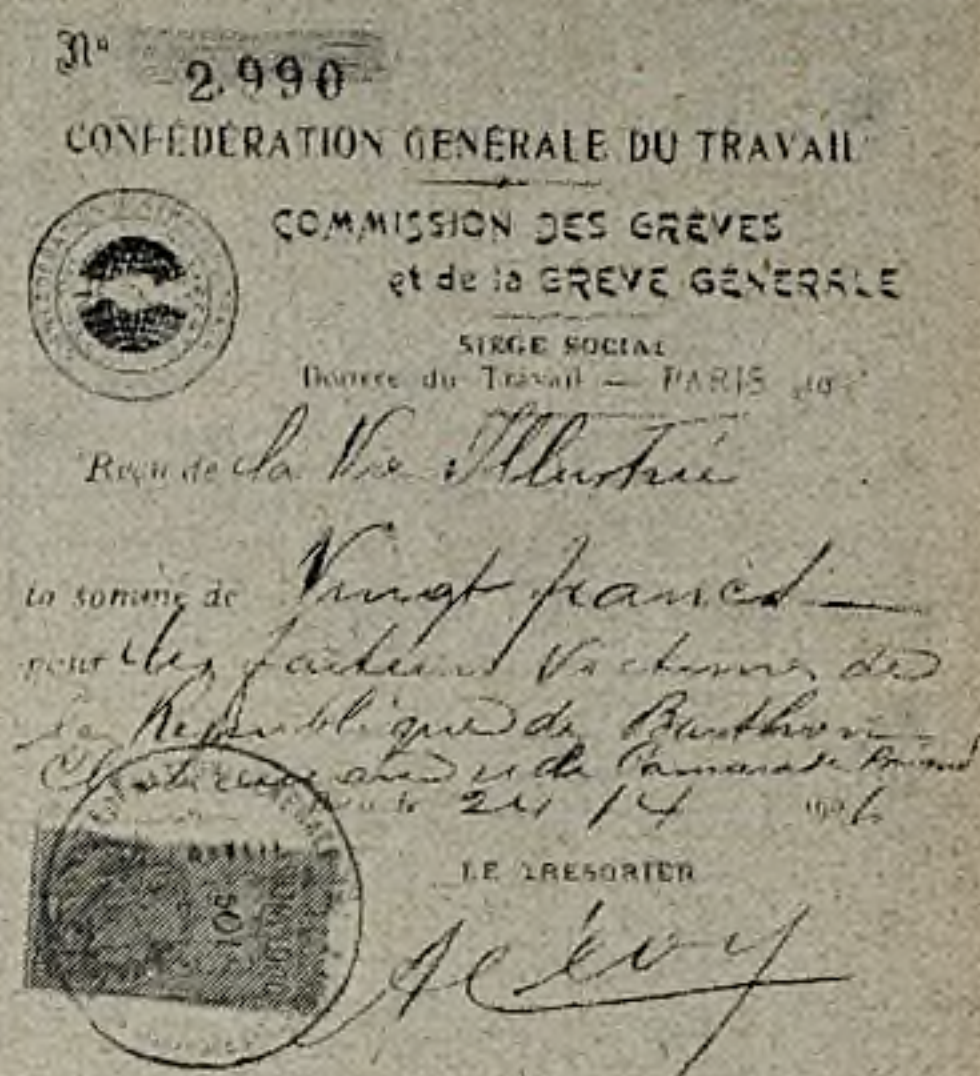 Nº 2.990
CONFÉDÉRATION GÉNÉRALE DU TRAVAIL
COMMISSION DES GRÈVES
et de la GRÈVE GÉNÉRALE
SIÈGE SOCIAL
Bourse du Travail — PARIS
Reçu de la Vie Illustrée
la somme de Vingt francs
pour les facteurs Victimes de
la République de Barthou
Clemenceau et du Camarade Briand
24 / 4 1906
LE TRESORIER
A Lévy